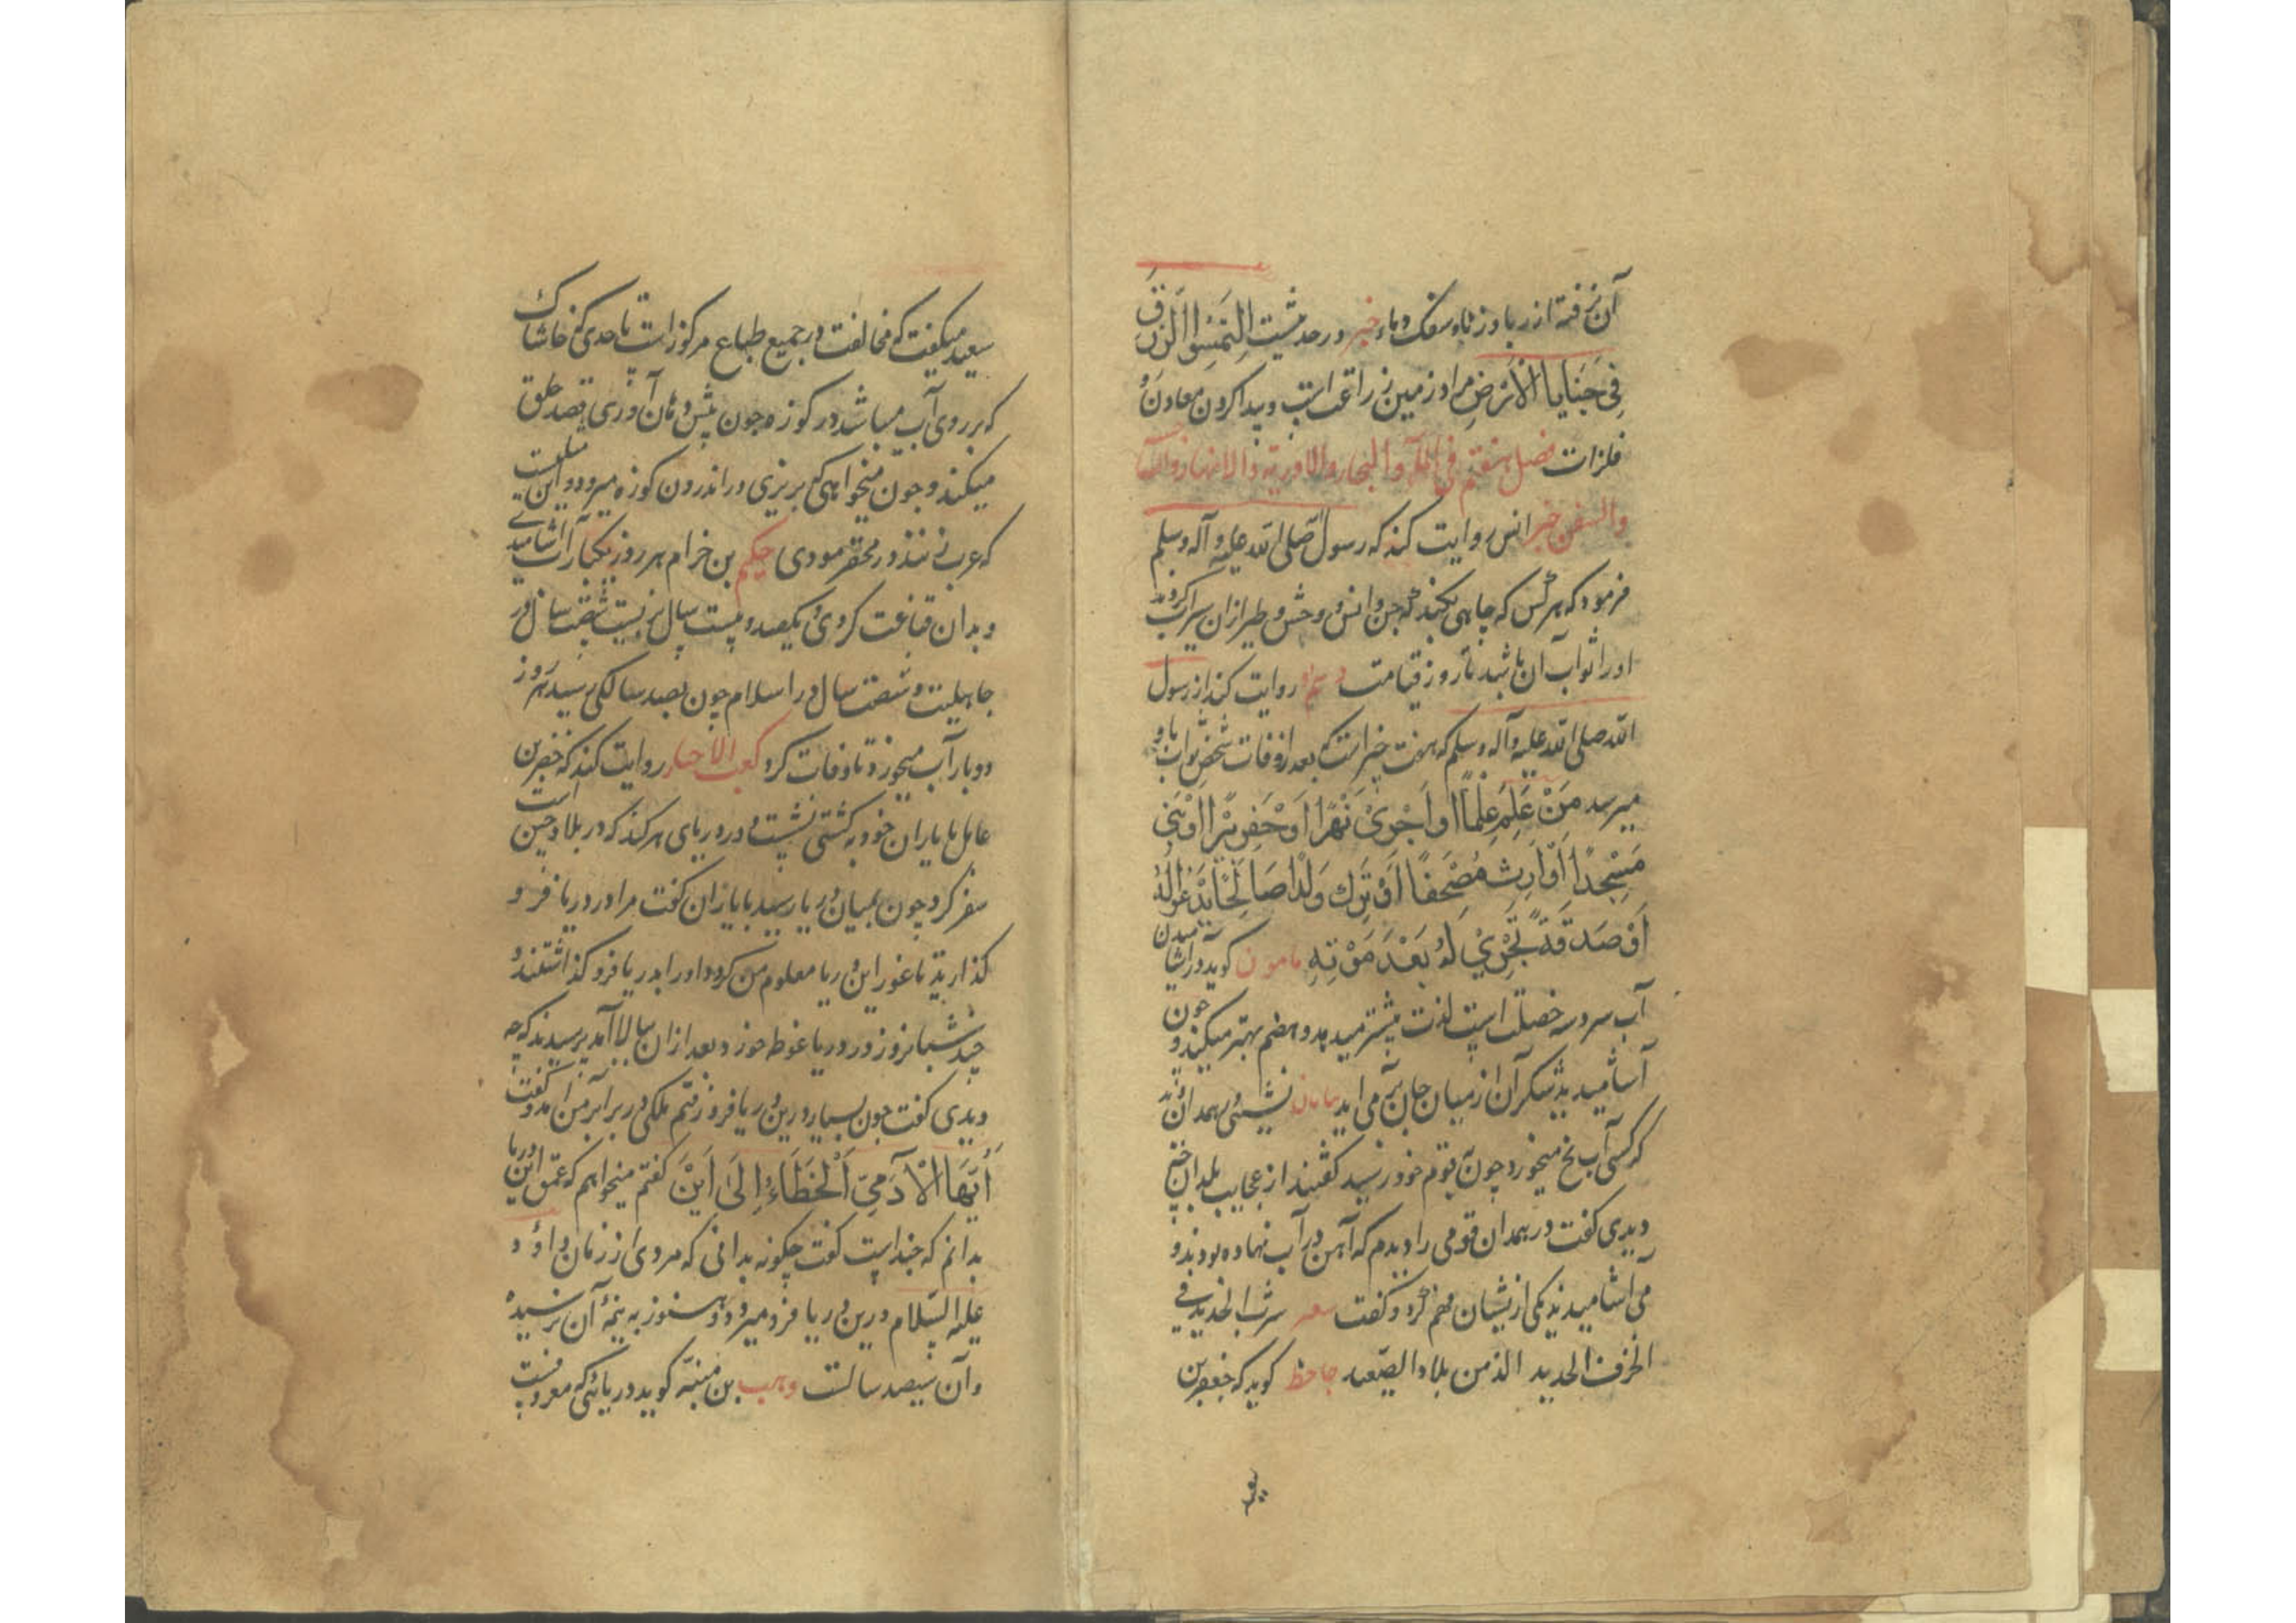 آن نرفته از ربا و زنا و سفک دماء خبر در حدیثست التمسوا الرزق
فی خبایا الارض مراد زمین زراعت است و پیدا کردن معادن
فلزات فصل هفتم فی الماء والبحار والاودیة والانهار والآبار
والسفن خبر انس روایت کند که رسول صلی الله علیه و آله وسلم
فرمود که هر کس که چاهی بکند که جن و انس و وحش و طیر از ان سیراب کردند
او را ثواب آن باشد تا روز قیامت روایت کند از رسول
الله صلی الله علیه وآله وسلم که هفت چیز است که بعد از وفات شخص ثواب باو
میرسد مَنْ عَلِمَ عِلْمًا اَو اَجْرٰی نَهْرًا اَوْ حَفِرَ بِئْرًا اَوْ بَنٰی
مَسْجِدًا اَوْ اَرِثَ مُصْحَفًا اَوْ تَرَكَ وَلَدًا صَالِحًا یَدْعُو لَهُ
اَوْ صَدَقَةً تَجْرِیْ لَهُ بَعْدَ مَوْتِهِ مامون کوید در آشامیدن
آب سرد سه خصلت است لذت بیشتر میدهد و هضم بهتر میکند و چون
آشامیدند شکر آن از میان جان بر می اید
که کسی آب یخ میخورد چون بقوم خود رسید کفتند از عجایب بلدان چه
دیدی کفت در همدان قومی را دیدم که آهن در آب نهاده بودند و
می اشامیدند یکی از یشان فهم کرد و کفت شعر شرب الحدید فی
الخزف الجدید الذ من بلاد الصعید جاحظ کوید که جعفر بن
سعید میکفت که مخالفت در جمیع طباع مرکوز است تا حدی که خاشاک
که بر روی آب میباشد در کوزه چون پیش دهان آوری قصد حلق
میکند و چون میخواهی که بریزی در اندرون کوزه میرود و این
که عرب حکیم بن خرام هر روز یکبار آب آشامیدی
و بدان قناعت کردی و یکصد و بیست سال بزیست شصت سال در
جاهلیت و شصت سال در اسلام چون بصد سالکی رسید هر روز
دو بار آب میخورد تا وفات کرد کعب الاحبار روایت کند که خضر بن
عامل با یاران خود به کشتی نشست و در دریای هرکند که در بلاد چین است
سفر کرد چون بمیان دریا رسید با یاران کفت مرا در دریا فرو
کذارید تا غور این دریا معلوم من کردد او را بدریا فرو کذاشتند و
چند شبانروز در دریا غوطه خورد بعد از ان ببالا آمد پرسیدند که چه
دیدی کفت چون بسیار درین دریا فرو رفتم ملکی در برابر من آمد و کفت
اَیُّهَا الْاٰدَمِیّ اَلْخَطَّاءُ اِلٰی اَیْنَ کفتم میخواهم که عمق این دریا
بدانم که چند است کفت چکونه بدانی که مردی از زمان داؤد
علیه السلام درین دریا فرو میرود و هنوز به نیمهٔ آن نرسیده
وآن سیصد سالست وهب بن منبّه کوید دریائی که معروفست